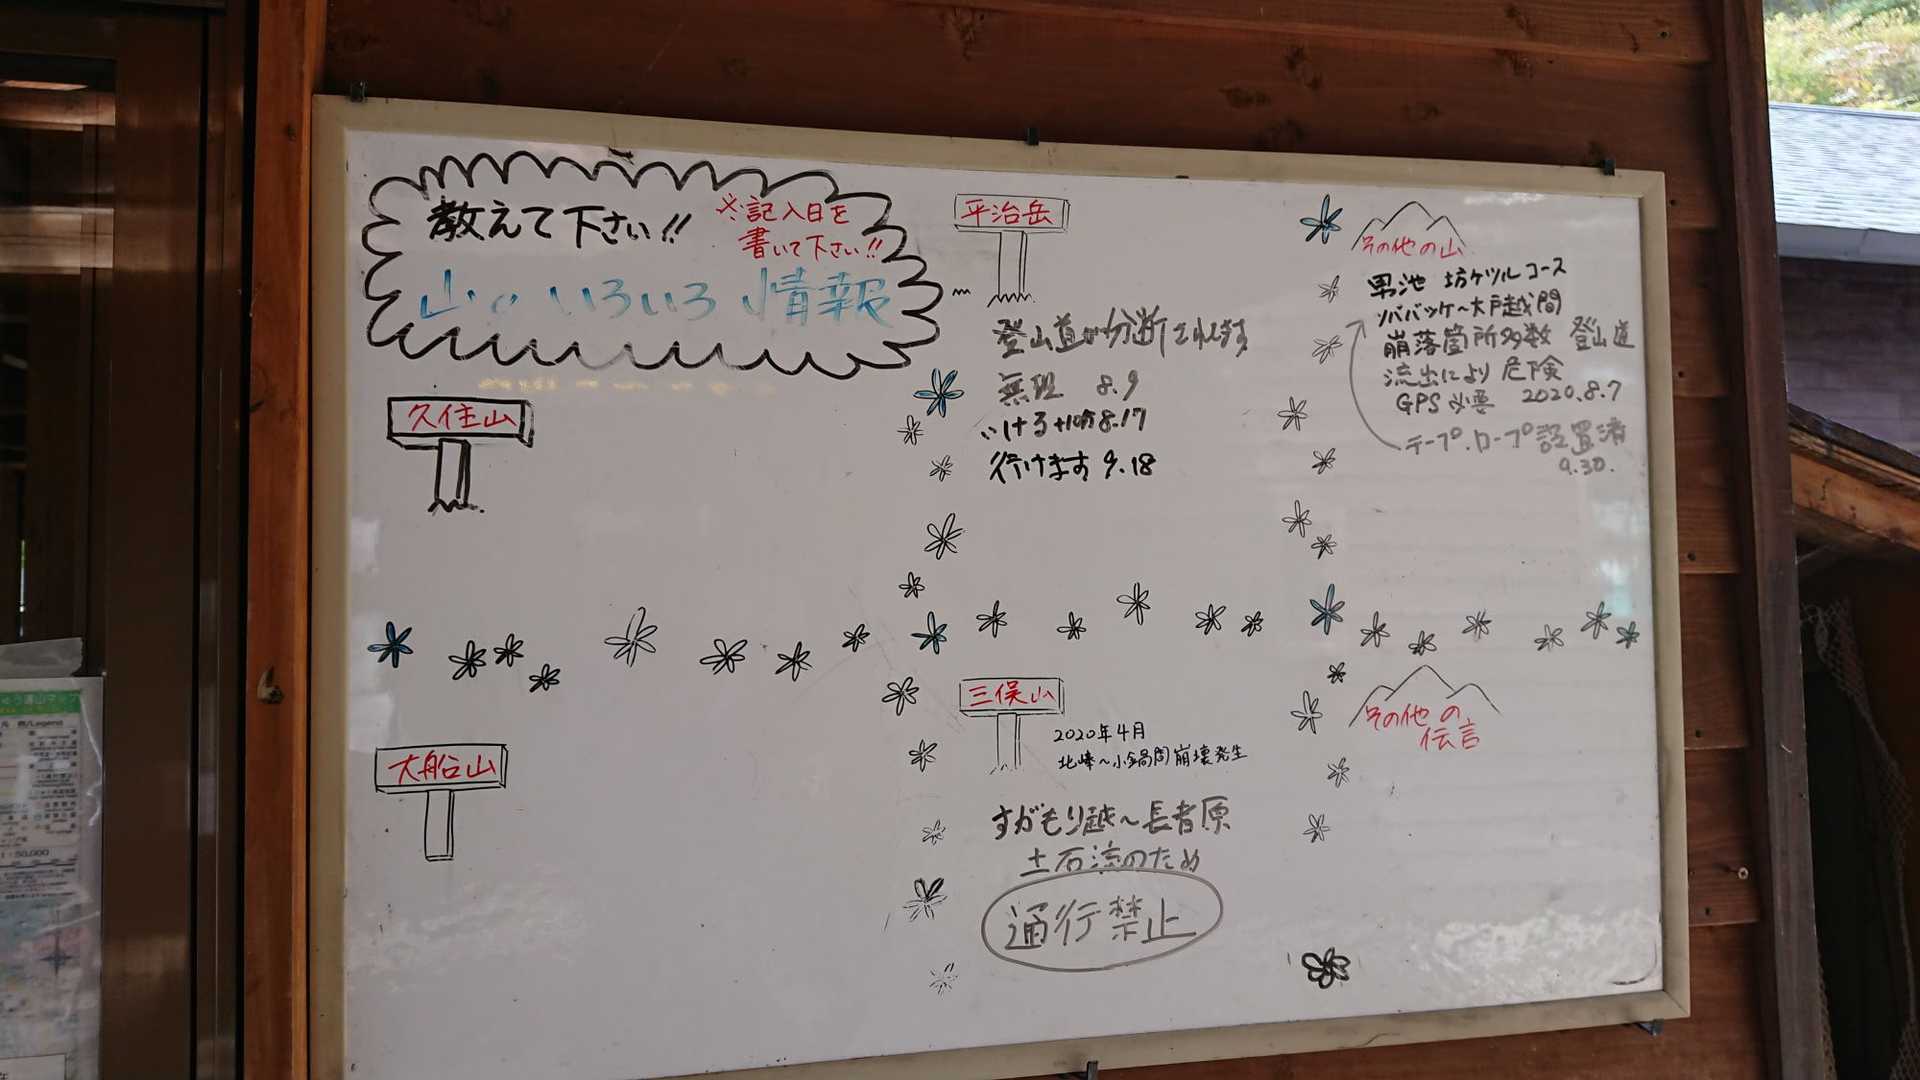 教えて下さい!!
※記入日を
書いて下さい!!
山のいろいろ情報
久住山
大船山
平治岳
登山道が分断されてます
無理 8.9
いける 8.17
行けます 9.18
三俣山
2020年4月
北峰〜小鍋間崩壊発生
すがもり越〜長者原
土石流のため
通行禁止
その他の山
男池 坊ガツルコース
ソババッケ〜大戸越間
崩落箇所多数 登山道
流出により危険
GPS必要 2020.8.7
テープ.ロープ設置済
9.30.
その他の
伝言
1:50,000